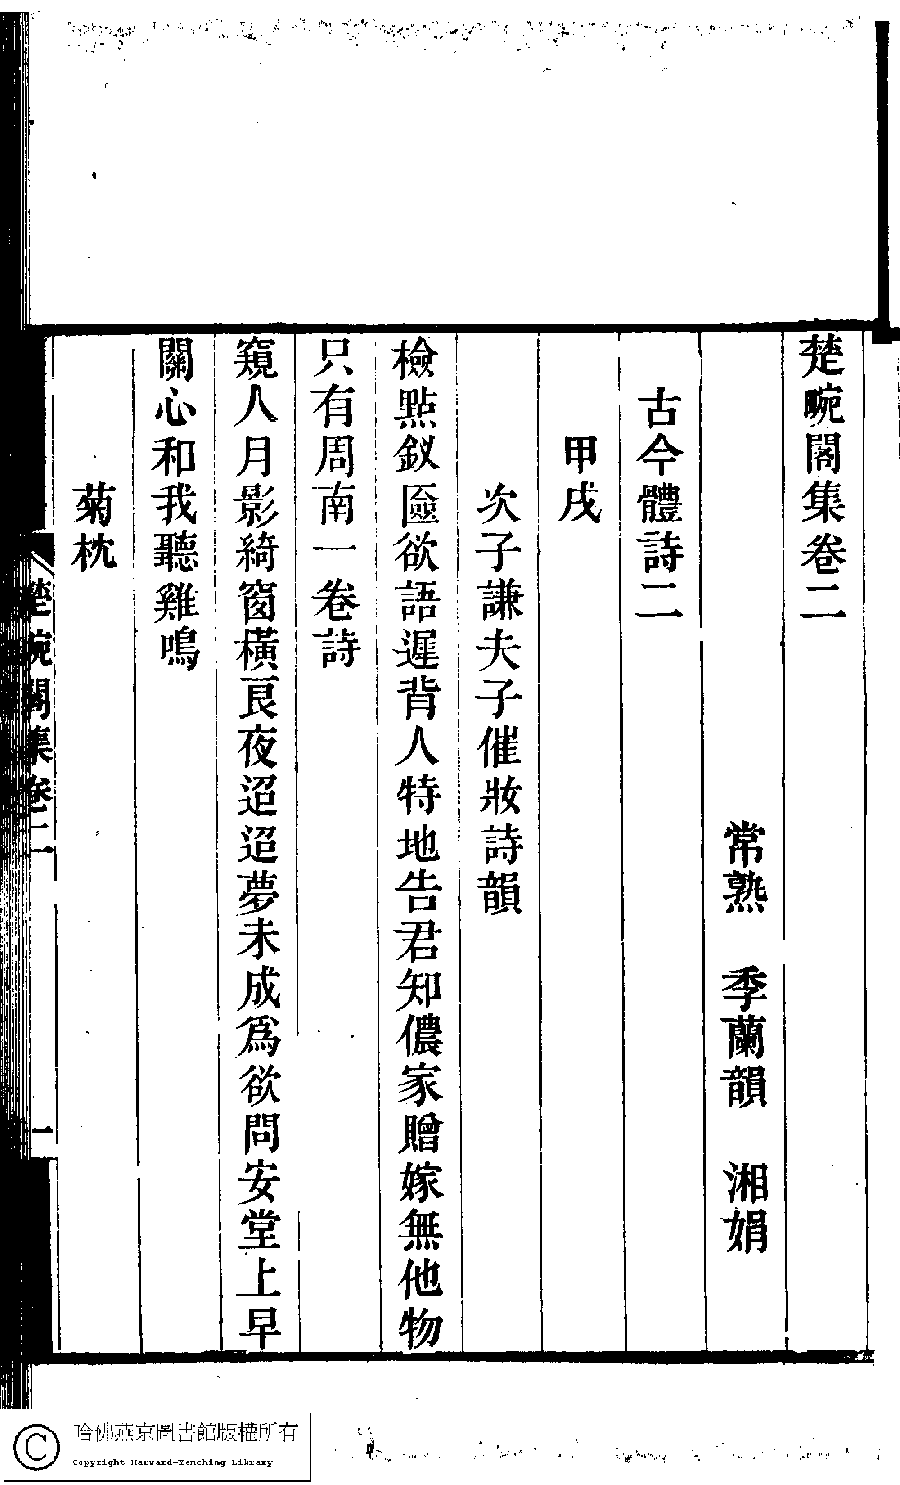 楚畹閣集卷二
常熟　季蘭韻　湘娟
古今體詩二
甲戌
次子謙夫子催妝詩韻
檢點釵匳欲語遲背人特地告君知儂家贈嫁無他物
只有周南一卷詩
窺人月影綺窗橫良夜迢迢夢未成爲欲問安堂上早
關心和我聽雞鳴
菊枕
楚畹閣集卷二
一
哈佛燕京圖書館版權所有
Copyright Harvard-Yenching Library